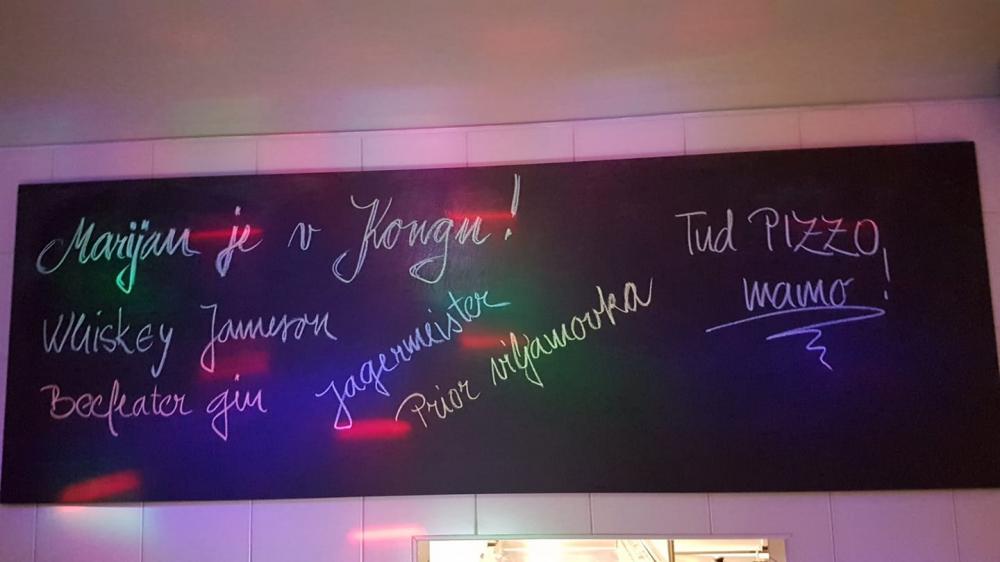 Marijan je v Kongu!
Whiskey Jameson
Beefeater gin
Jagermeister
Prior viljamovka
Tud PIZZO,
mamo!